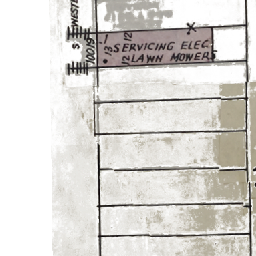 WESTE
S
10019
13
12
SERVICING ELEC.
12 LAWN MOWERS